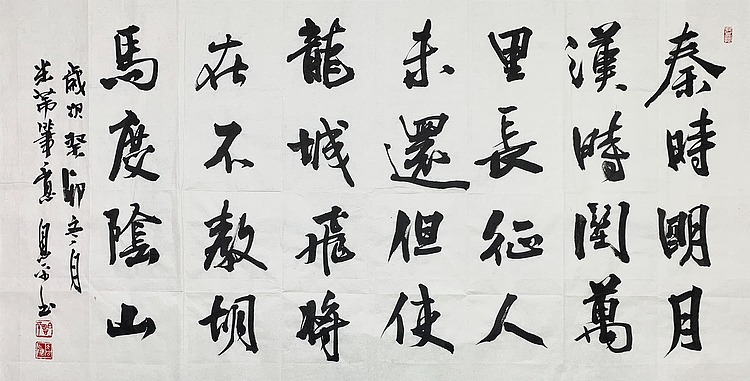 秦時明月
漢時關萬
里長征人
未還但使
龍城飛將
在不教胡
馬度陰山
歲次癸卯五月
米芾筆意